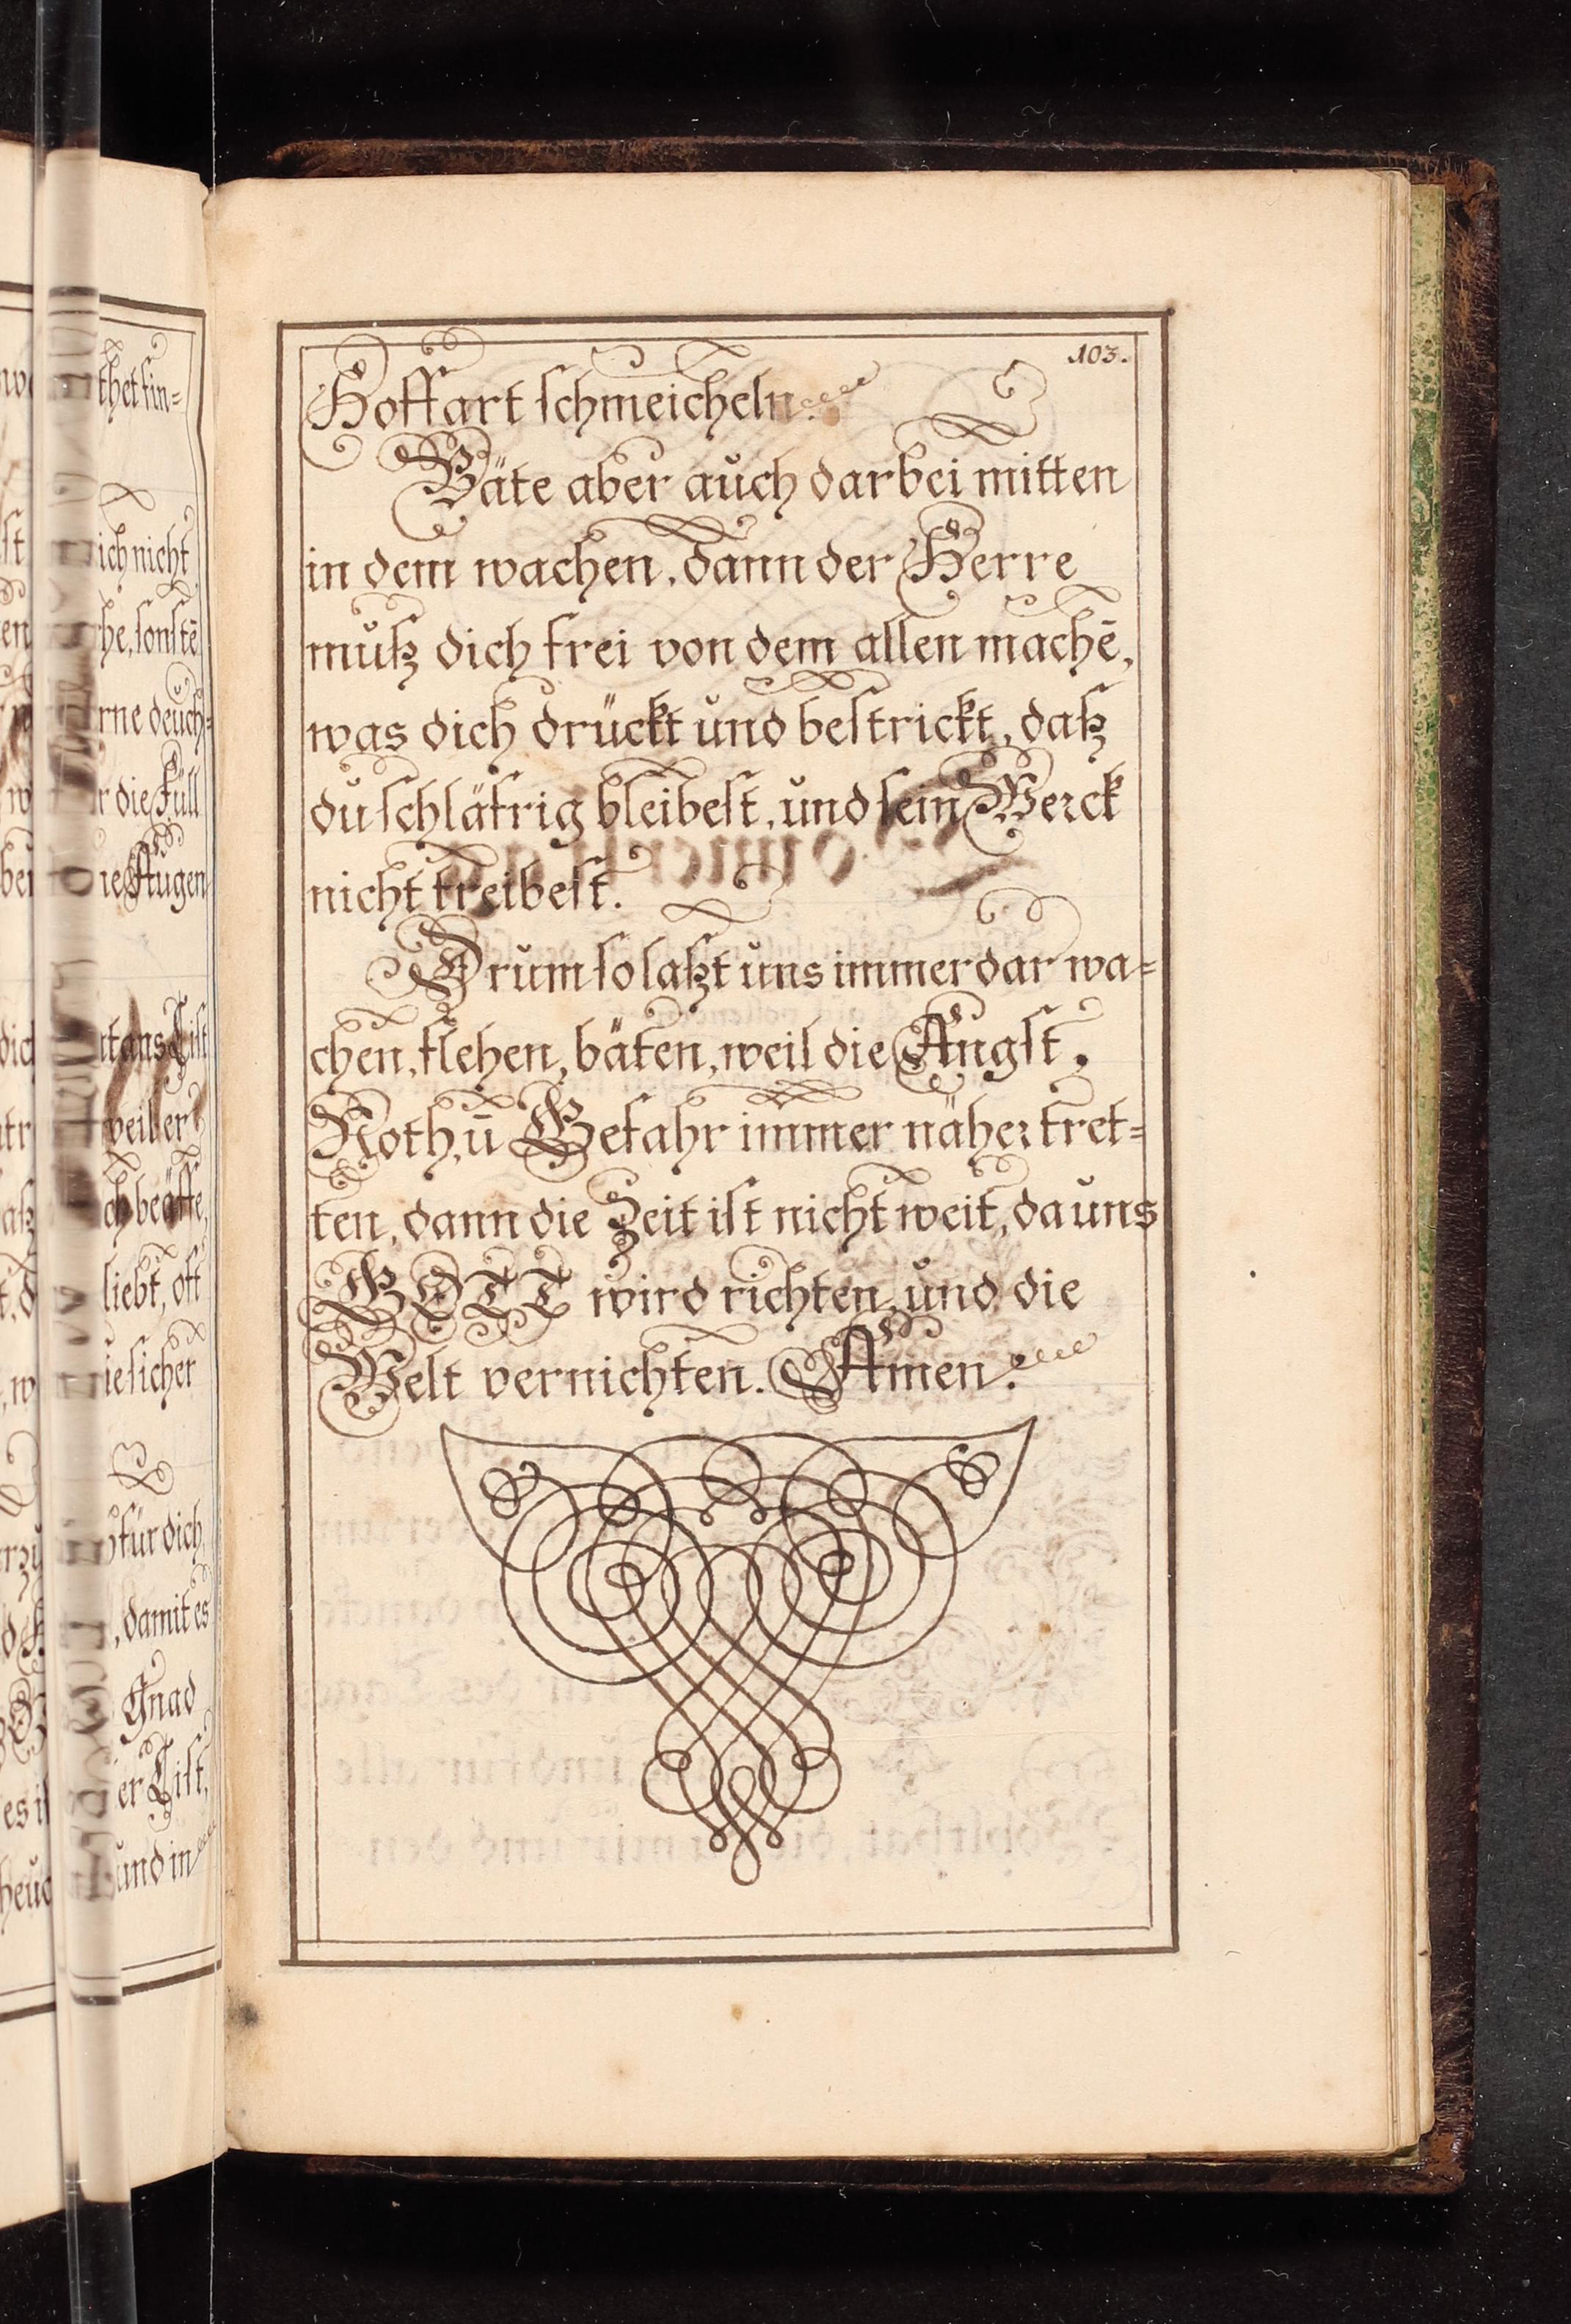 103.
Hoffart schmeicheln.
Bäte aber auch darbei mitten
in dem wachen, dann der Herre
muß dich frei von dem allen machē,
was dich drückt und bestrickt, daß
du schläfrig bleibest, und sein Werck
nicht treibest.
Drum so laßt uns immerdar wa=
chen, flehen, bäten, weil die Angst,
Noth, un̄ Gefahr immer näher tret=
ten, dann die Zeit ist nicht weit, da uns
GOTT wird richten, und die
Welt vernichten. Amen.